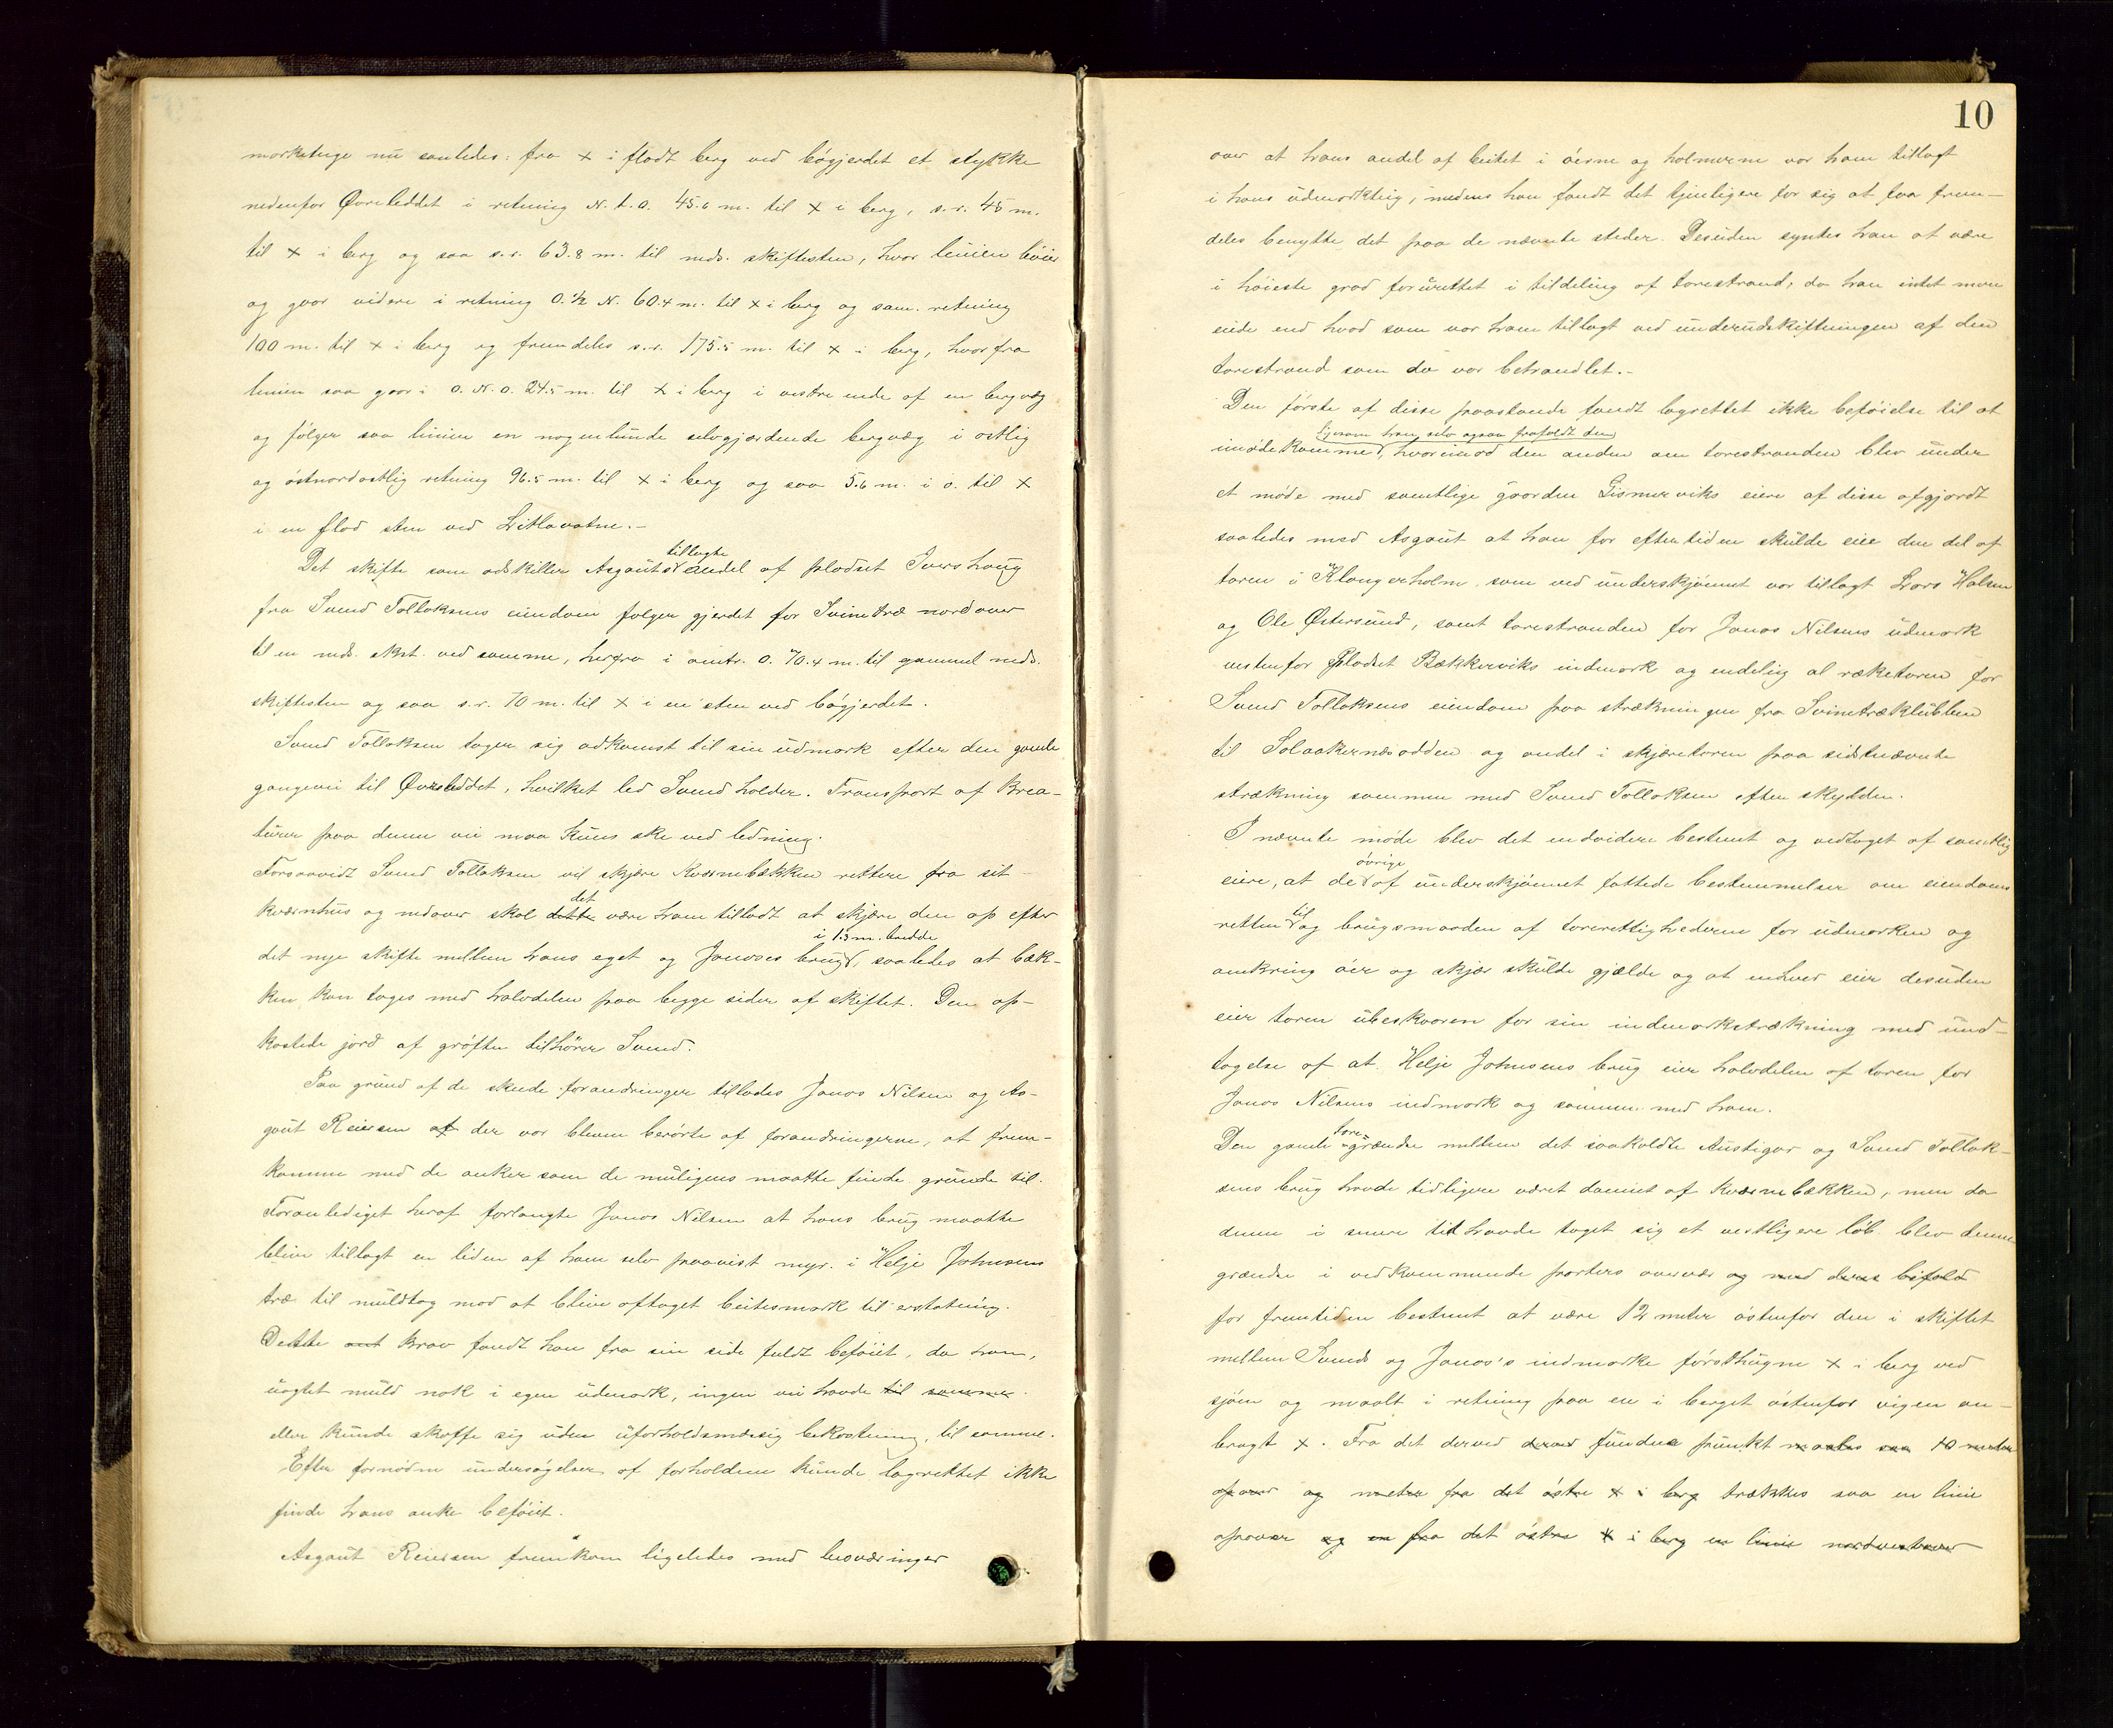 morkstuge nu saaledes: fra × i fladt berg ved bøgjerdet et stykke
nedenfor Øvreleddet i retning N. t. o. 45.6 m. til × i berg, s. r. 45 m.
til × i berg og saa s. r. 63.8 m. til neds. skiftesten, hvor linien bøier
og gaar videre i retning O. ½ N. 60.4 m. til × i berg og sam. retning
100 m. til × i berg og fremdeles s. r. 175.5 m. til × i berg, hvorfra
linien saa gaar i o. N. o. 24.5 m. til × i berg i vestre ende af en bergvæg
og følger saa linien en nogenlunde selvgjærdende bergvæg i østlig
og østnordostlig retning 96.5 m. til × i berg og saa 5.6 m. i o. til ×
i en flad sten ved Litlavatne.-
Det skifte som adskiller Asgauts tillagte andel af pladset Ivers Haug
fra Svend Tollaksens eiendom følger gjerdet for Svinetræ nordover
til en neds. skst. ved samme, herfra i omtr. o. 70.4 m. til gammel neds.
skiftesten og saa s. r. 70 m. til × i en sten ved bøgjerdet.
Svend Tollaksen tager sig adkomst til sin udmark efter den gamle
gangvei til Øvreleddet, hvilket led Svend holder. Transport af Krea-
turer paa denne vei maa kuns ske ved ledning.
Forsaavidt Svend Tollaksen vil skjære Kværnebækken rettere fra sit
kværnhus og nedover skal dette det være ham tilladt at skjære den op efter
det nye skifte mellem hans eget og Jonases brug i 1.3 m. bredde, saaledes at bæk-
ken kan tages med halvdelen paa begge sider af skiftet. Den op-
kastede jord af grøften tilhører Svend.
Paa grund af de skede forandringer tillodes Jonas Nilsen og As-
gaut Reiersen at der var bleven berørte af forandringerne, at frem-
komme med de anker som de muligens maatte finde grunde til.
Foranlediget heraf forlangte Jonas Nilsen at hans brug maatte
blive tillagt en liden af ham selv paavist myr i Helje Johnsens
træ til muldtag mod at blive aftaget beitesmark til erstatning.
Dette ant krav fandt han fra sin side fuldt beføiet, da han,
uagtet muld nok i egen udmark, ingen vei havde til samme
eller kunde skaffe sig uden uforholdsmæsig bekostning, til samme.
Efter fornøden undersøgelser af forholdene kunde lagrettet ikke
finde hans anke beføiet.
Asgaut Reiersen fremkom ligeledes med besværinger
10
over at hans andel af beitet i øerne og holmerne var ham tillagt
i hans udmarkteig, medens han fandt det tjenligere for sig at faa frem-
deles benytte det paa de nævnte steder. Desuden syntes han at være
i høieste grad forurettet i tildeling af tarestrand, da han intet mere
eiede end hvad som var ham tillagt ved underudskiftningen af den
tarestrand som da var behandlet.-
Den første af disse paastande fandt lagrettet ikke beføielse til at
imødekomme, ligesom han selv ogsaa frafaldt den, hvorimod den anden om tarestranden blev under
et møde med samtlige gaarden Gismerviks eiere af disse afgjordt
saaledes med Asgaut at han for eftertiden skulde eie den del af
taren i Klangerholm som ved underskjønnet var tillagt Lars Halsen
og Ole Østersund, samt tarestranden for Jonas Nilsens udmark
vestenfor pladset Bækkerviks indmark og endelig al ræketaren for
Svend Tollaksens eiendom paa strækningen fra Svinetræklubben
til Solaakernæsodden og andel i skjæretaren paa sidstnævnte
strækning sammen med Svend Tollaksen efter skylden.
I nævnte møde blev det endvidere bestemt og vedtaget af samtlig
eiere, at de øvrige af underskjønnet fattede bestemmelser om eiendoms
retten til og brugsmaaden af tarerettighederne for udmarken og
omkring øer og skjær skulde gjælde og at enhver eier desuden
eier taren ubeskaaren for sin indmarkstrækning med und-
tagelse af at Helje Johnsens brug eier halvdelen af taren for
Jonas Nilsens indmark og sammen med ham.
Den gamle tare-grændse mellem det saakaldte Austigar og Svend Tollak-
sens brug havde tidligere været dannet af kværnebækken, men da
denne i senere tid havde taget sig et vestligere løb blev denne
grændse i vedkommende parters overvær og med deres bifald
for fremtiden bestemt at være 12 meter østenfor den i skiftet
mellem Svends og Jonas's indmarke førsthugne × i berg ved
sjøen og maalt i retning paa en i berget østenfor vigen an-
bragt ×. Fra det derved derved fundne punkt maales saa 10 meter
opover og meter fra det østre × i berg trækkes saa en linie
opover og en fra det østre × i berg en linie nordvestover